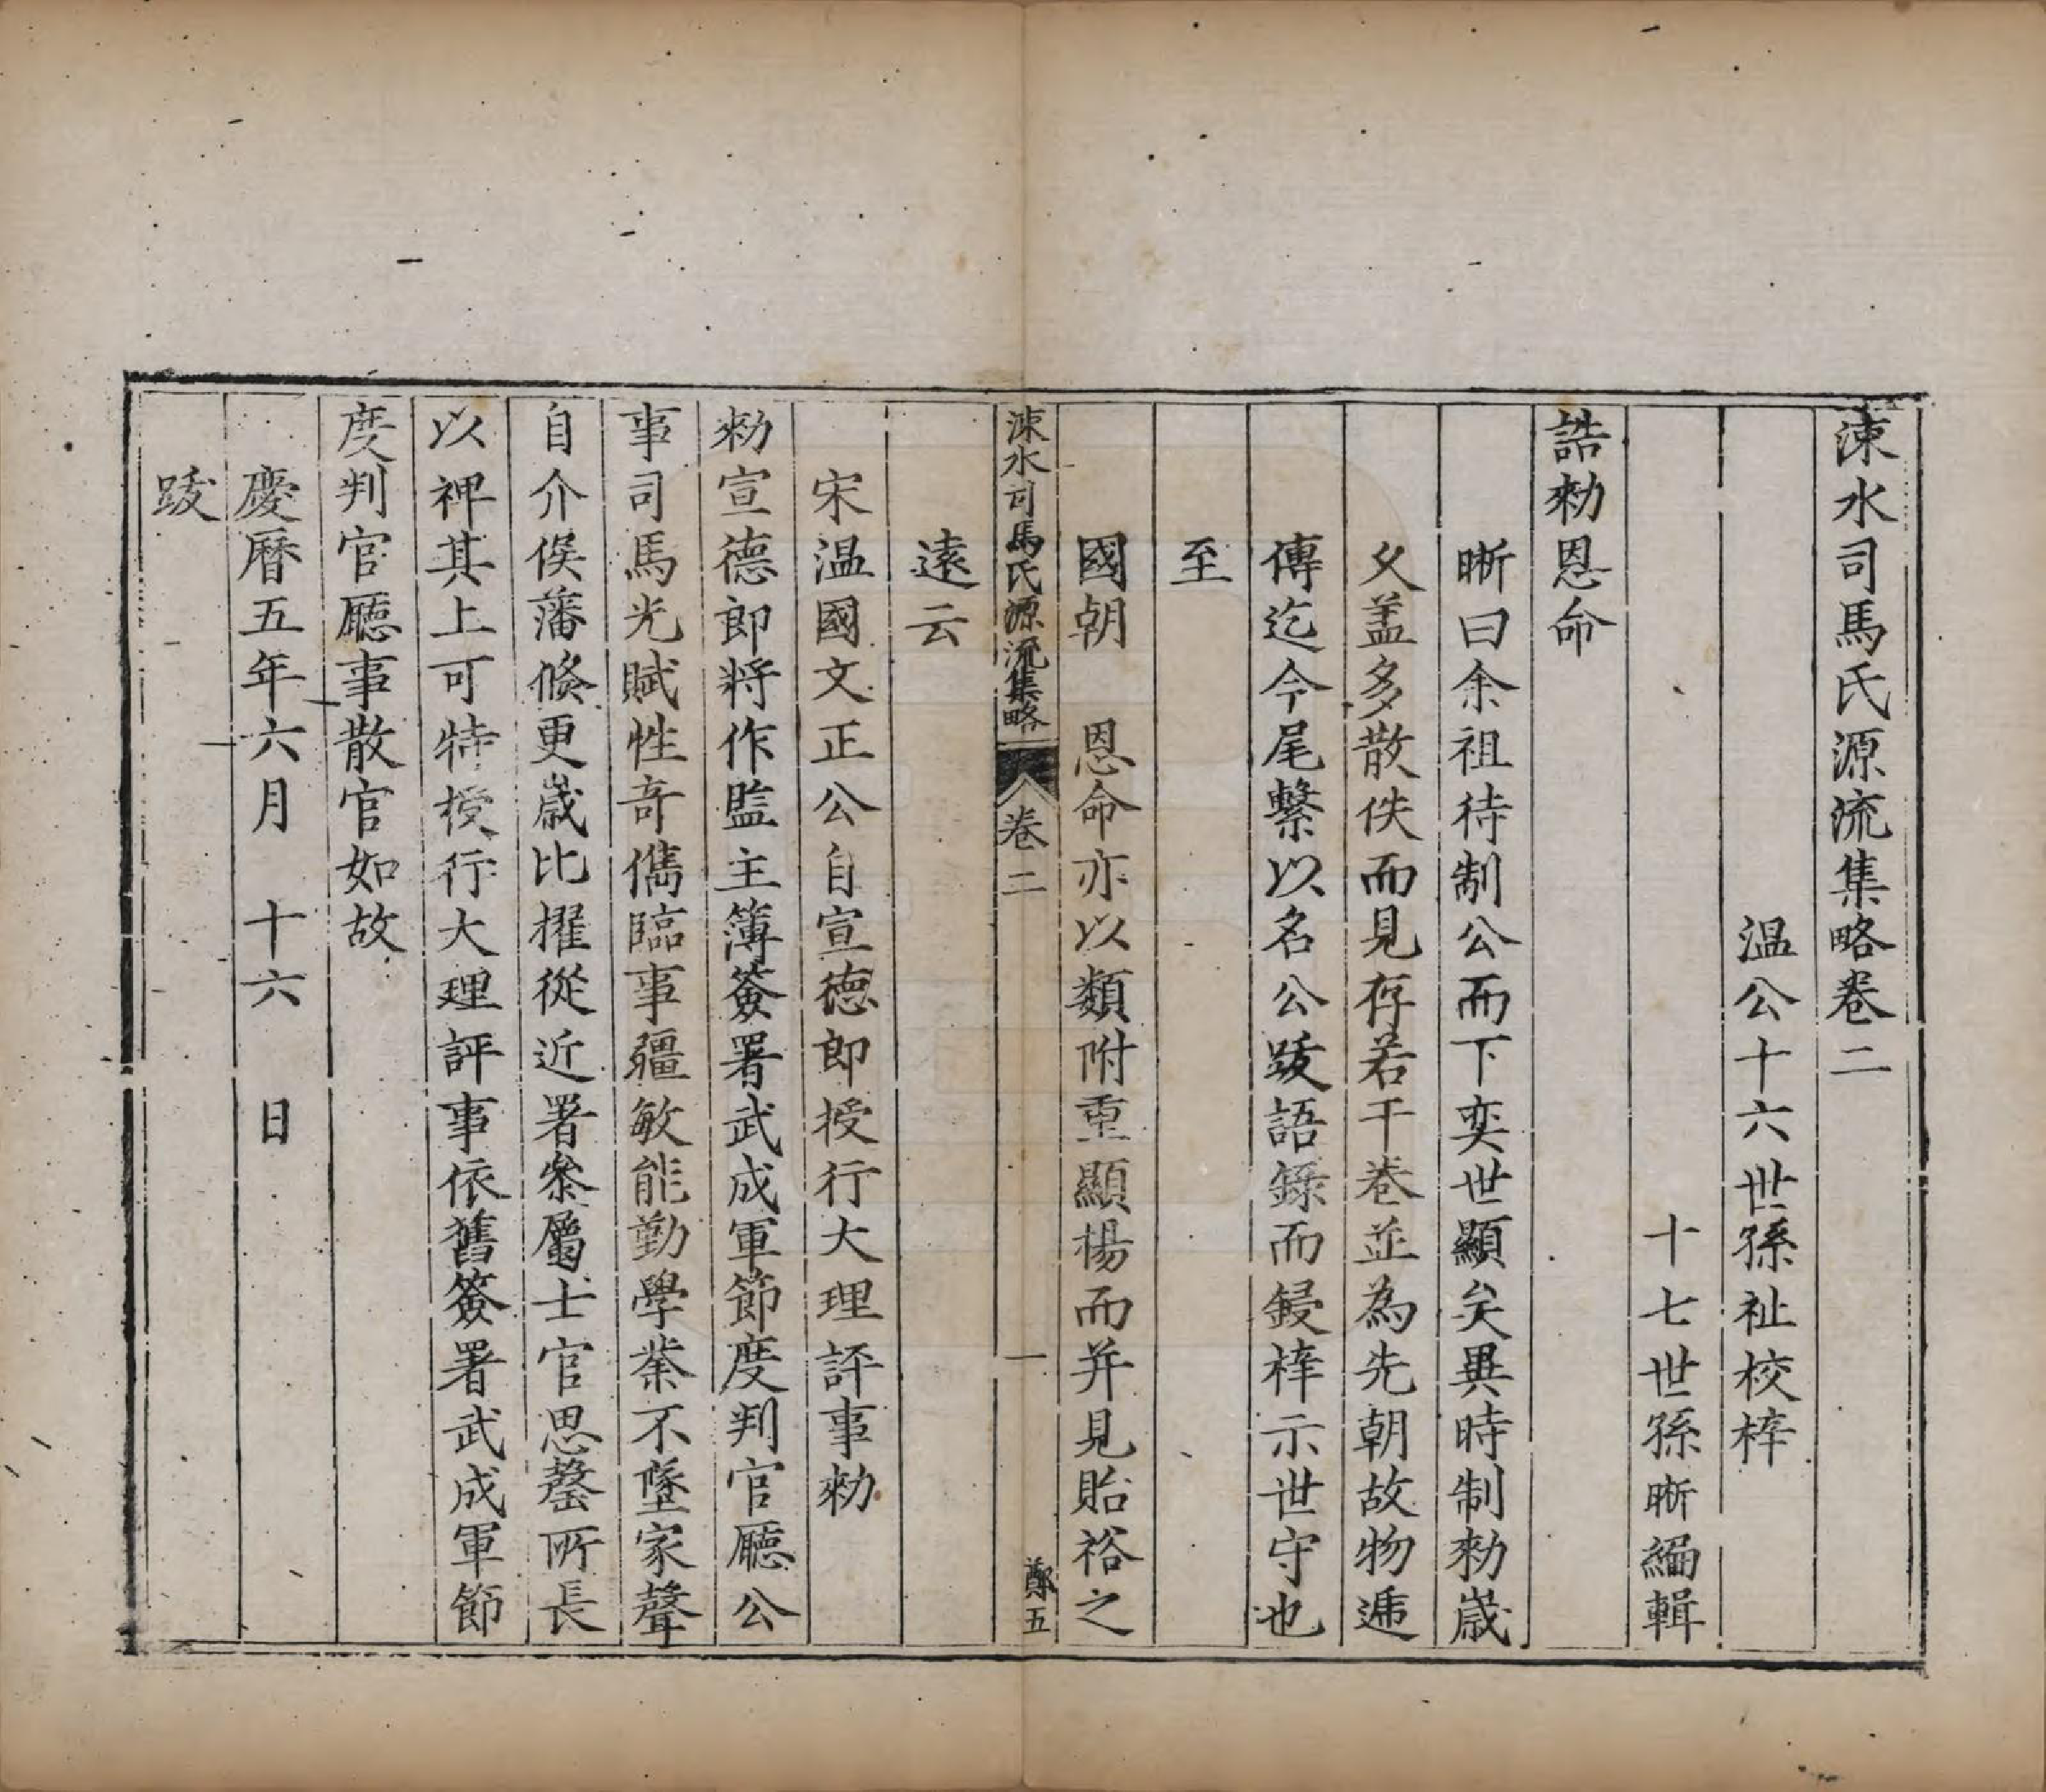 涑水司馬氏源流集略卷二
温公十六世孫祉校梓
十七世孫晣編輯
誥勑恩命
晣曰余祖待制公而下奕世顯矣異時制勑歲
乆盖多散佚而見存若干卷並為先朝故物遞
傳迄今尾繫以名公跋語錄而鋟梓示世守也
至
國朝　恩命亦以類附重顯揚而并見貽裕之
涑水司馬氏源流集略　卷二　一　鄭五
遠云
宋温國文正公自宣德郎授行大理評事勑
勑宣德郎將作監主簿簽署武成軍節度判官廳公
事司馬光賦性竒儁臨事疆敏能勤學業不墜家聲
自介侯藩倐更歲比擢從近署叅屬士官思罄所長
以裨其上可特授行大理評事依舊簽署武成軍節
度判官廳事散官如故
慶曆五年六月　十六　日
跋